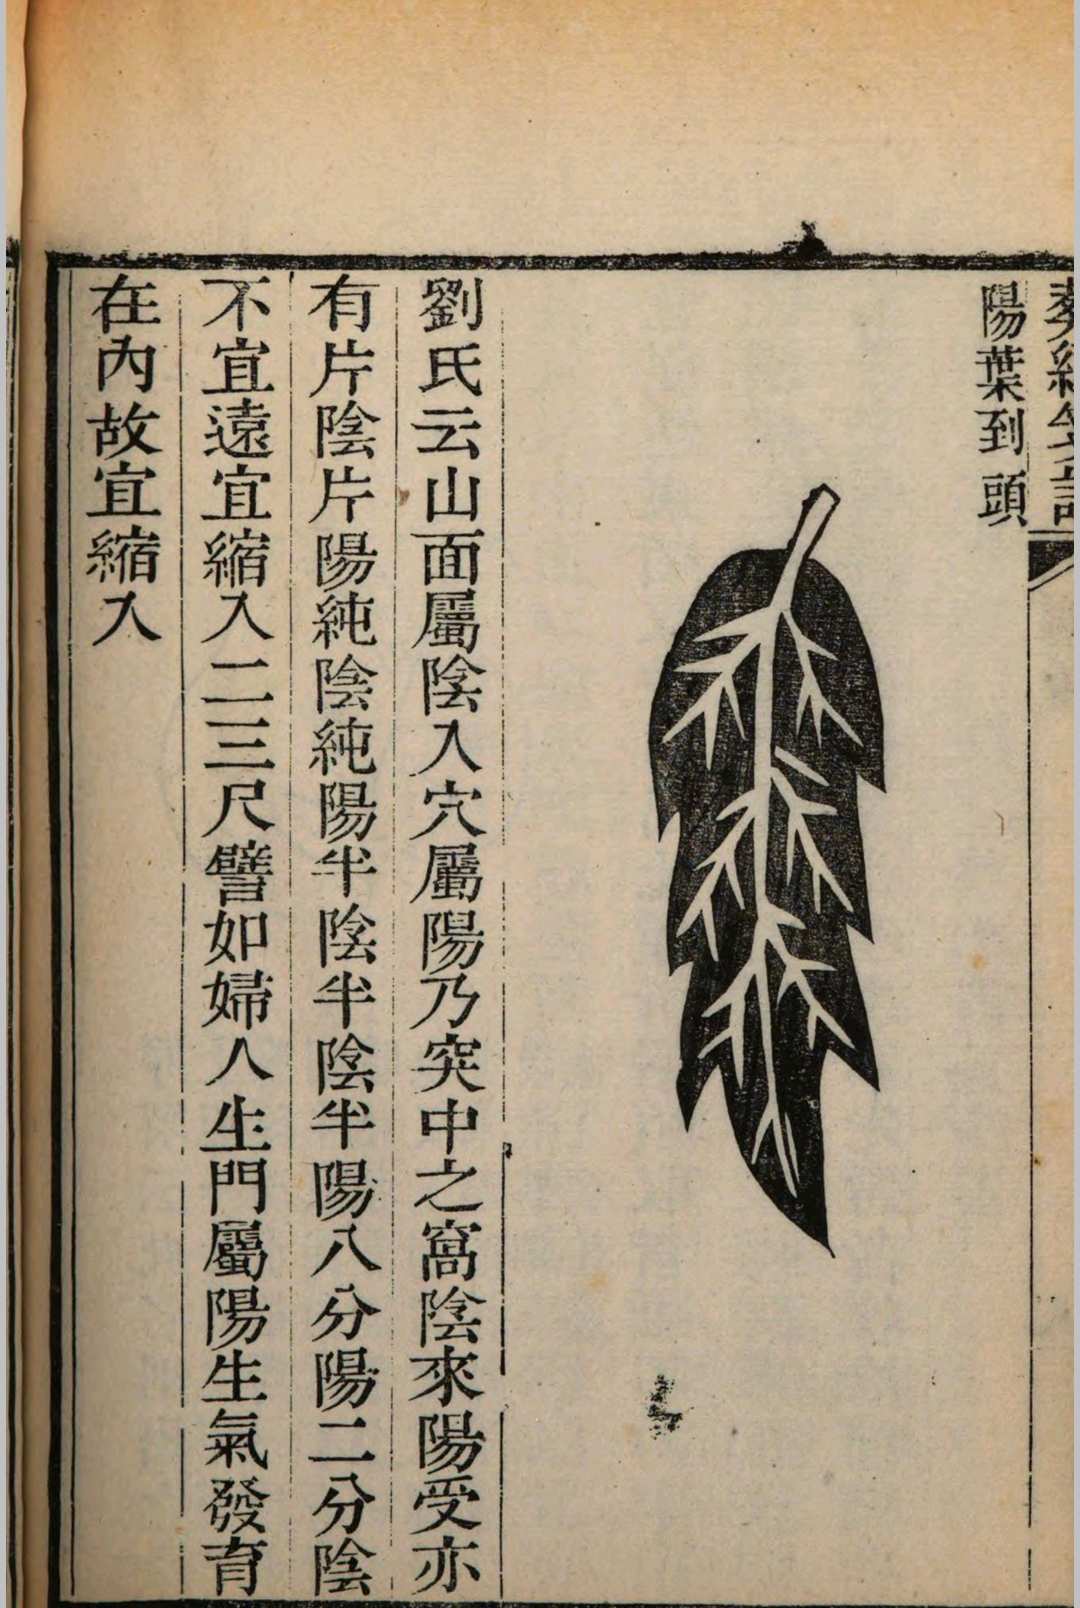 陽葉到頭
劉氏云山面屬陰入穴屬陽乃突中之窩陰來陽受亦
有片陰片陽純陰純陽半陰半陰半陽八分陽二分陰
不宜遠宜縮入二三尺譬如婦人生門屬陽生氣發育
在內故宜縮入